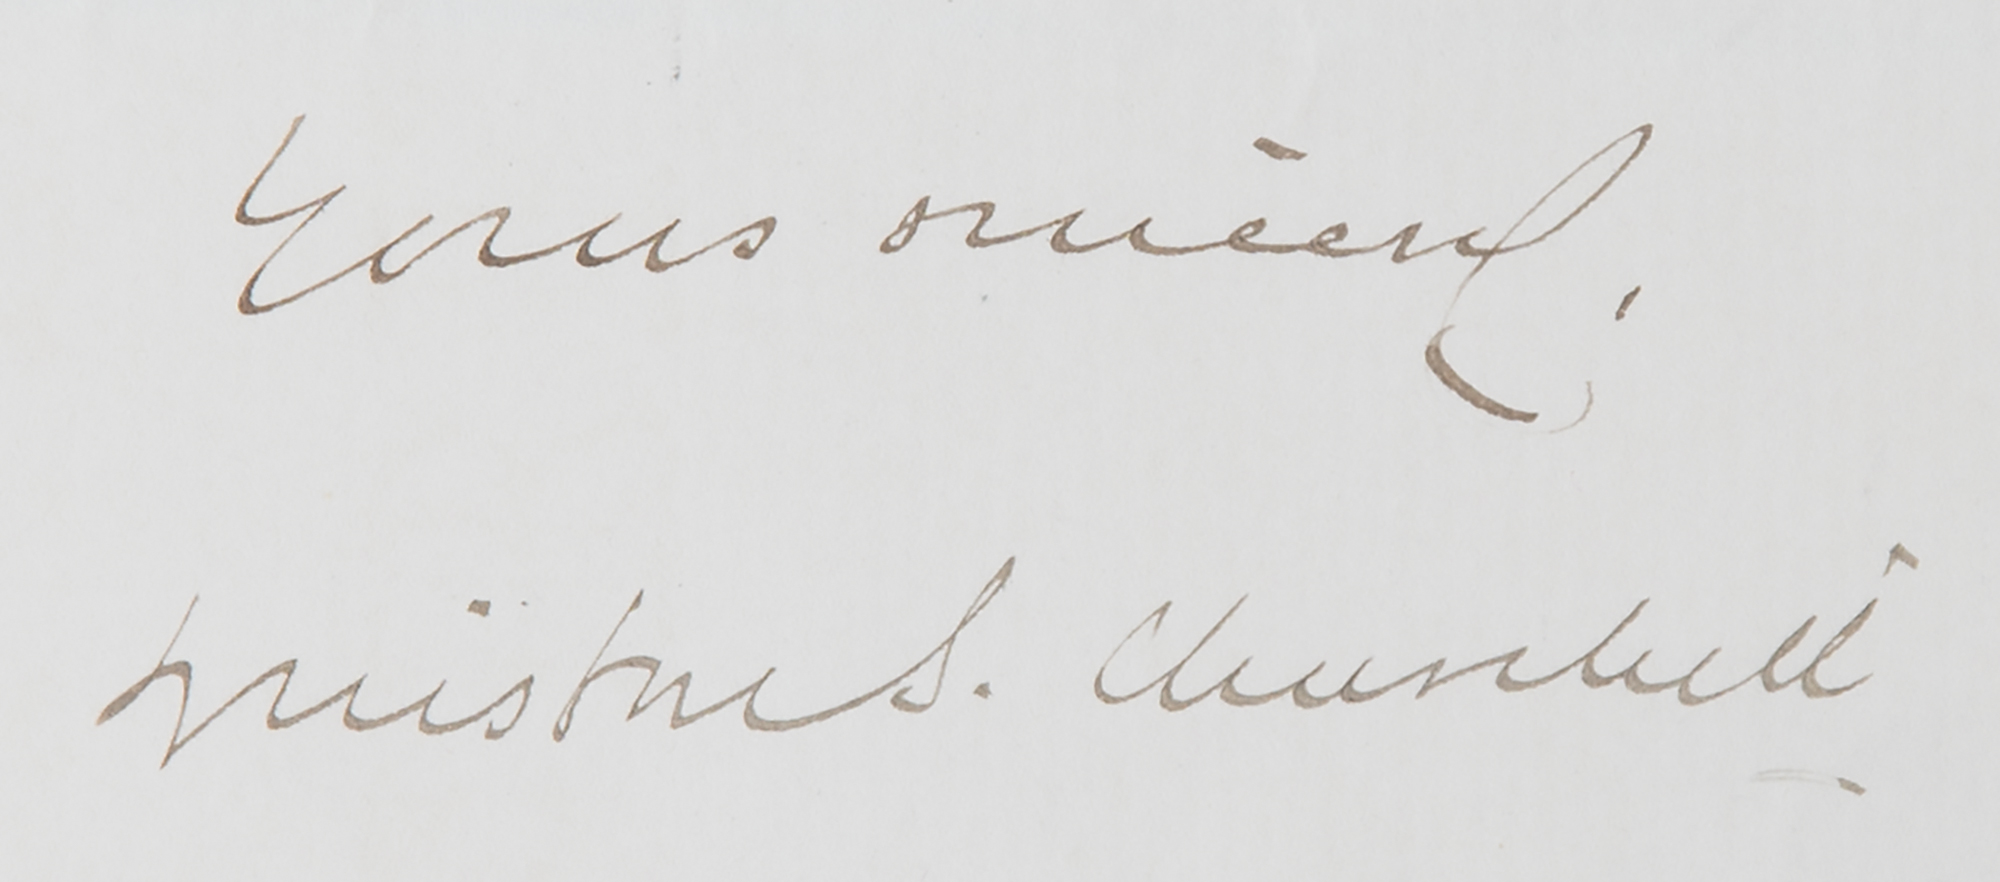 Yours sincerely,
Winston S. Churchill